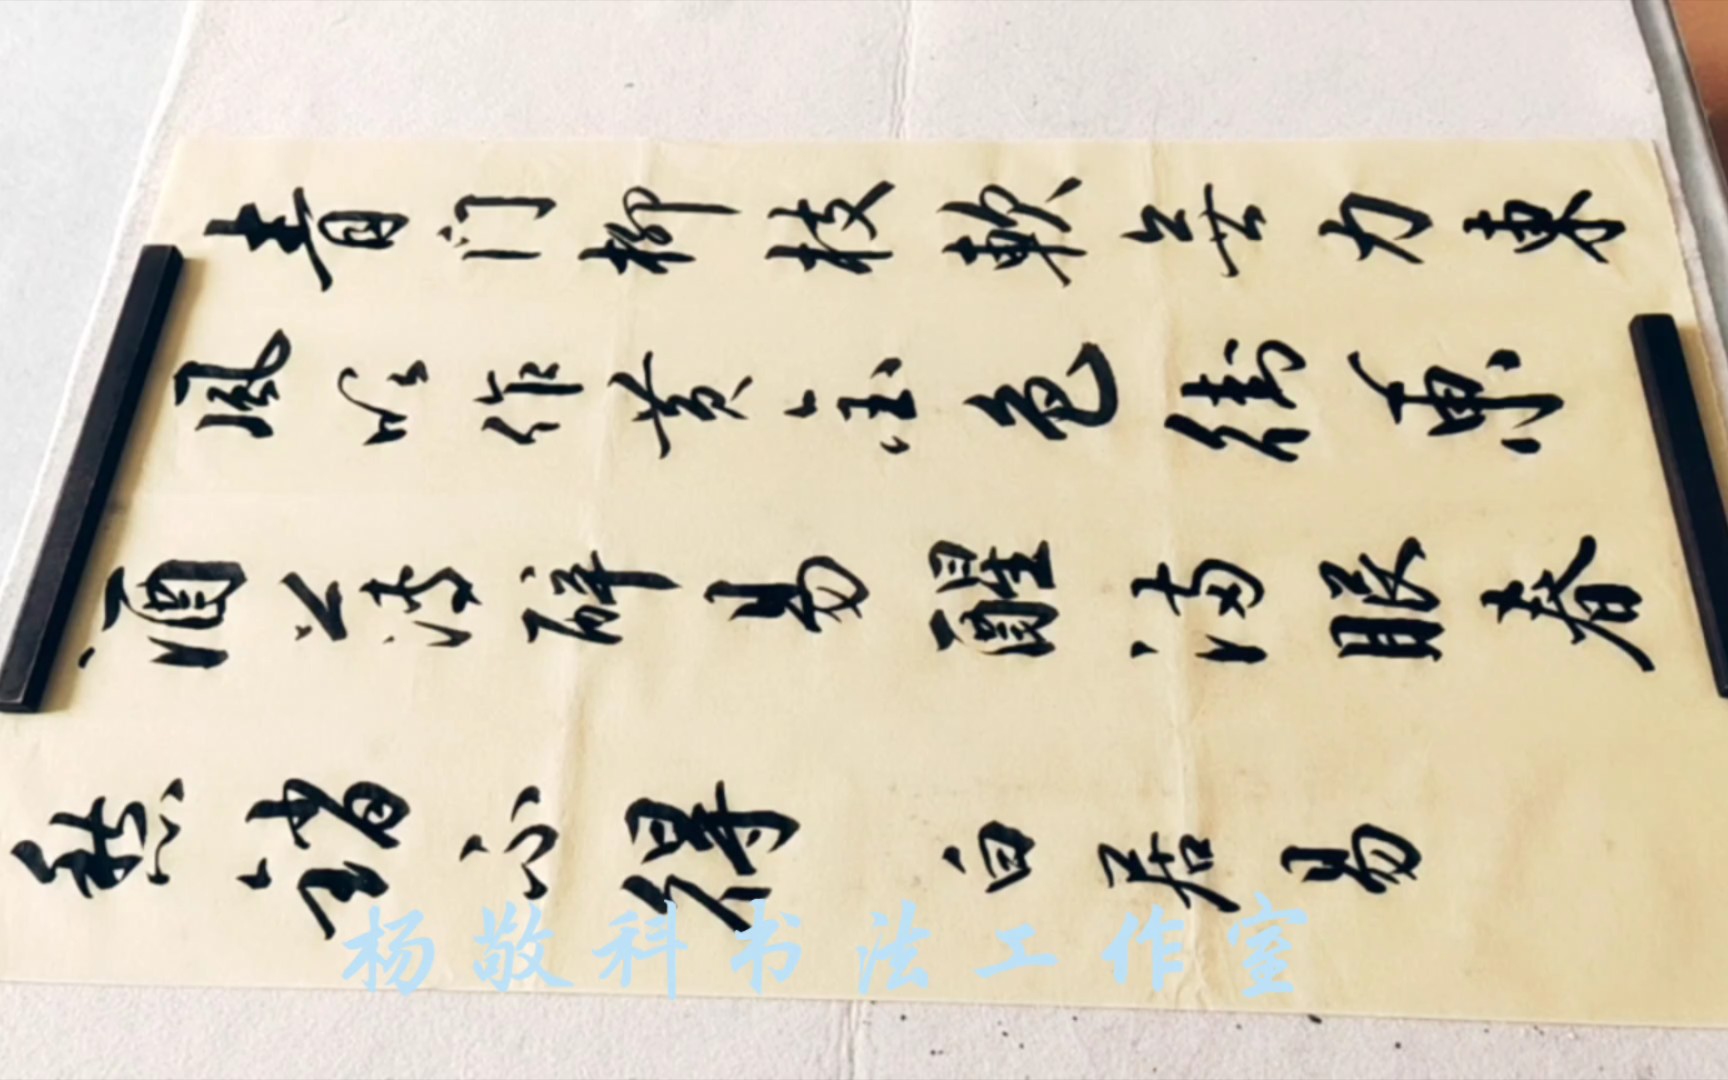 青门柳枝軟无力東
風吹作黄金色街東
酒薄醉易醒满眼春
愁銷不得 白居易
杨敬科书法工作室